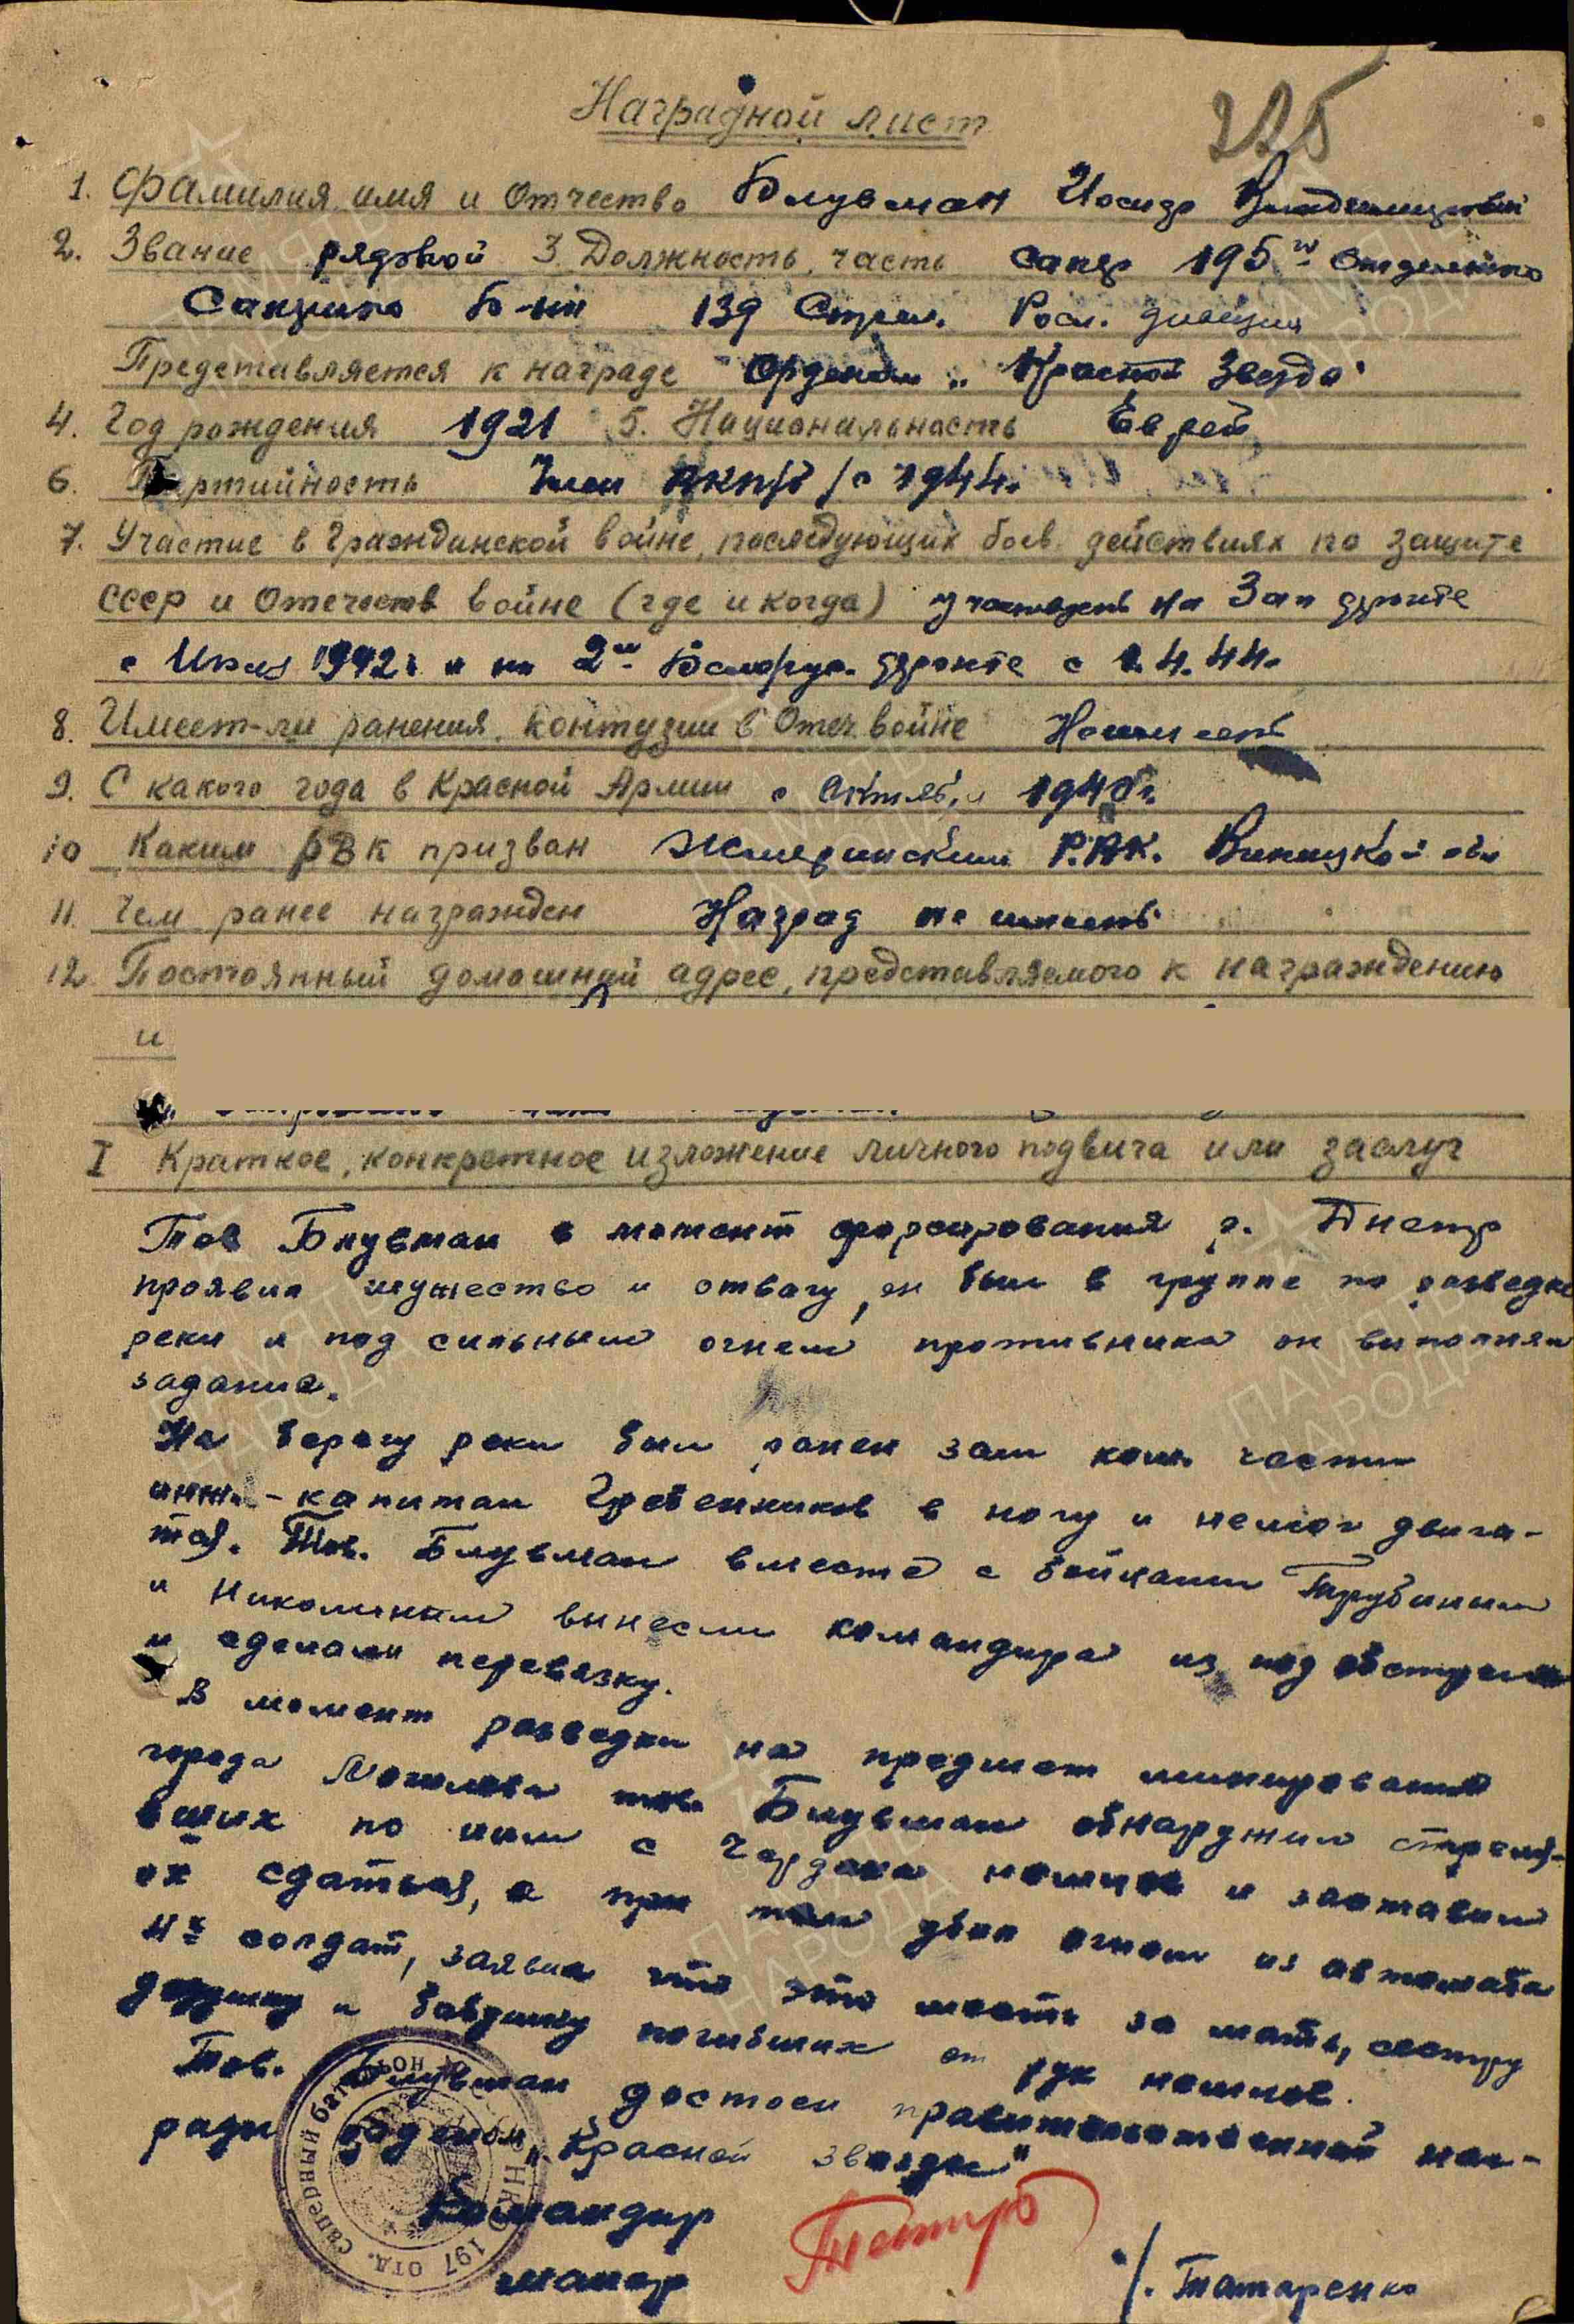 Наградной лист
225
1. Фамилия, имя и Отчество Блувман Иосиф
2. Звание рядовой 3. Должность, часть сапер 195й Отдельного
Саперного Б-на 139 Стрел. Росл. дивизии
Представляется к награде Орденом „Красной Звезда"
4. Год рождения 1921 5. Национальность Еврей
6. Партийность Член ВКП/б/ с 1944.
7. Участие в Гражданской войне, последующих боев. действиях по защите
СССР и Отечеств войне (где и когда) участвует на Зап фронте
с 1942г и на 2м Белорус. фронте с 1.4.44.
8. Имеет-ли ранения, контузии в Отеч. войне Не имеет
9. С какого года в Красной Армии с октяб. 1940г.
10 Каким РВК призван Жмеринским Р.В.К. Виницкой обл
11. Чем ранее награжден Наград не имеет
12. Постоянный домашний адрес, представляемого к награждению
и
I Краткое, конкретное изложение личного подвига или заслуг
Тов Блувман в момент форсирования р. Днепр
проявил мужество и отвагу, он был в группе по разведке
реки и под сильным огнем противника он выполнял
задание.
На берегу реки был ранен зам ком. части
инж.-капитан Гребенников в ногу и немог двига-
тся. Тов. Блувман вместе с бойцами Трубиным
и Николиным вынесли командира из под обстрела
и сделали перевязку.
В момент разведки на предмет минирования
города Могилева тов. Блувман обнаружил стреляв-
вших по ним с чердака немцев и заставил
их сдаться, а при том убил огнем из автомата
4х солдат, заявив что это месть за мать, сестру
дедушку и бабушку погибших от рук немцев.
Тов. Блувман достоен правительственной наг-
рады орденом „Красной звезды"
Командир
майор
/. Татаренко
197 отд. саперный батальон НКО
ПАМЯТЬ НАРОДА